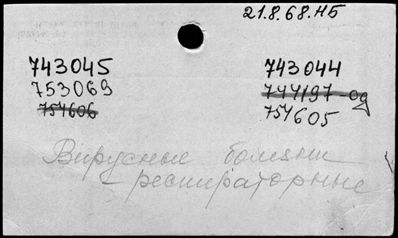 21.8.68.НБ
743045 743044
753069 744197-од
754606 754605
Вирусные болезни
– респираторные